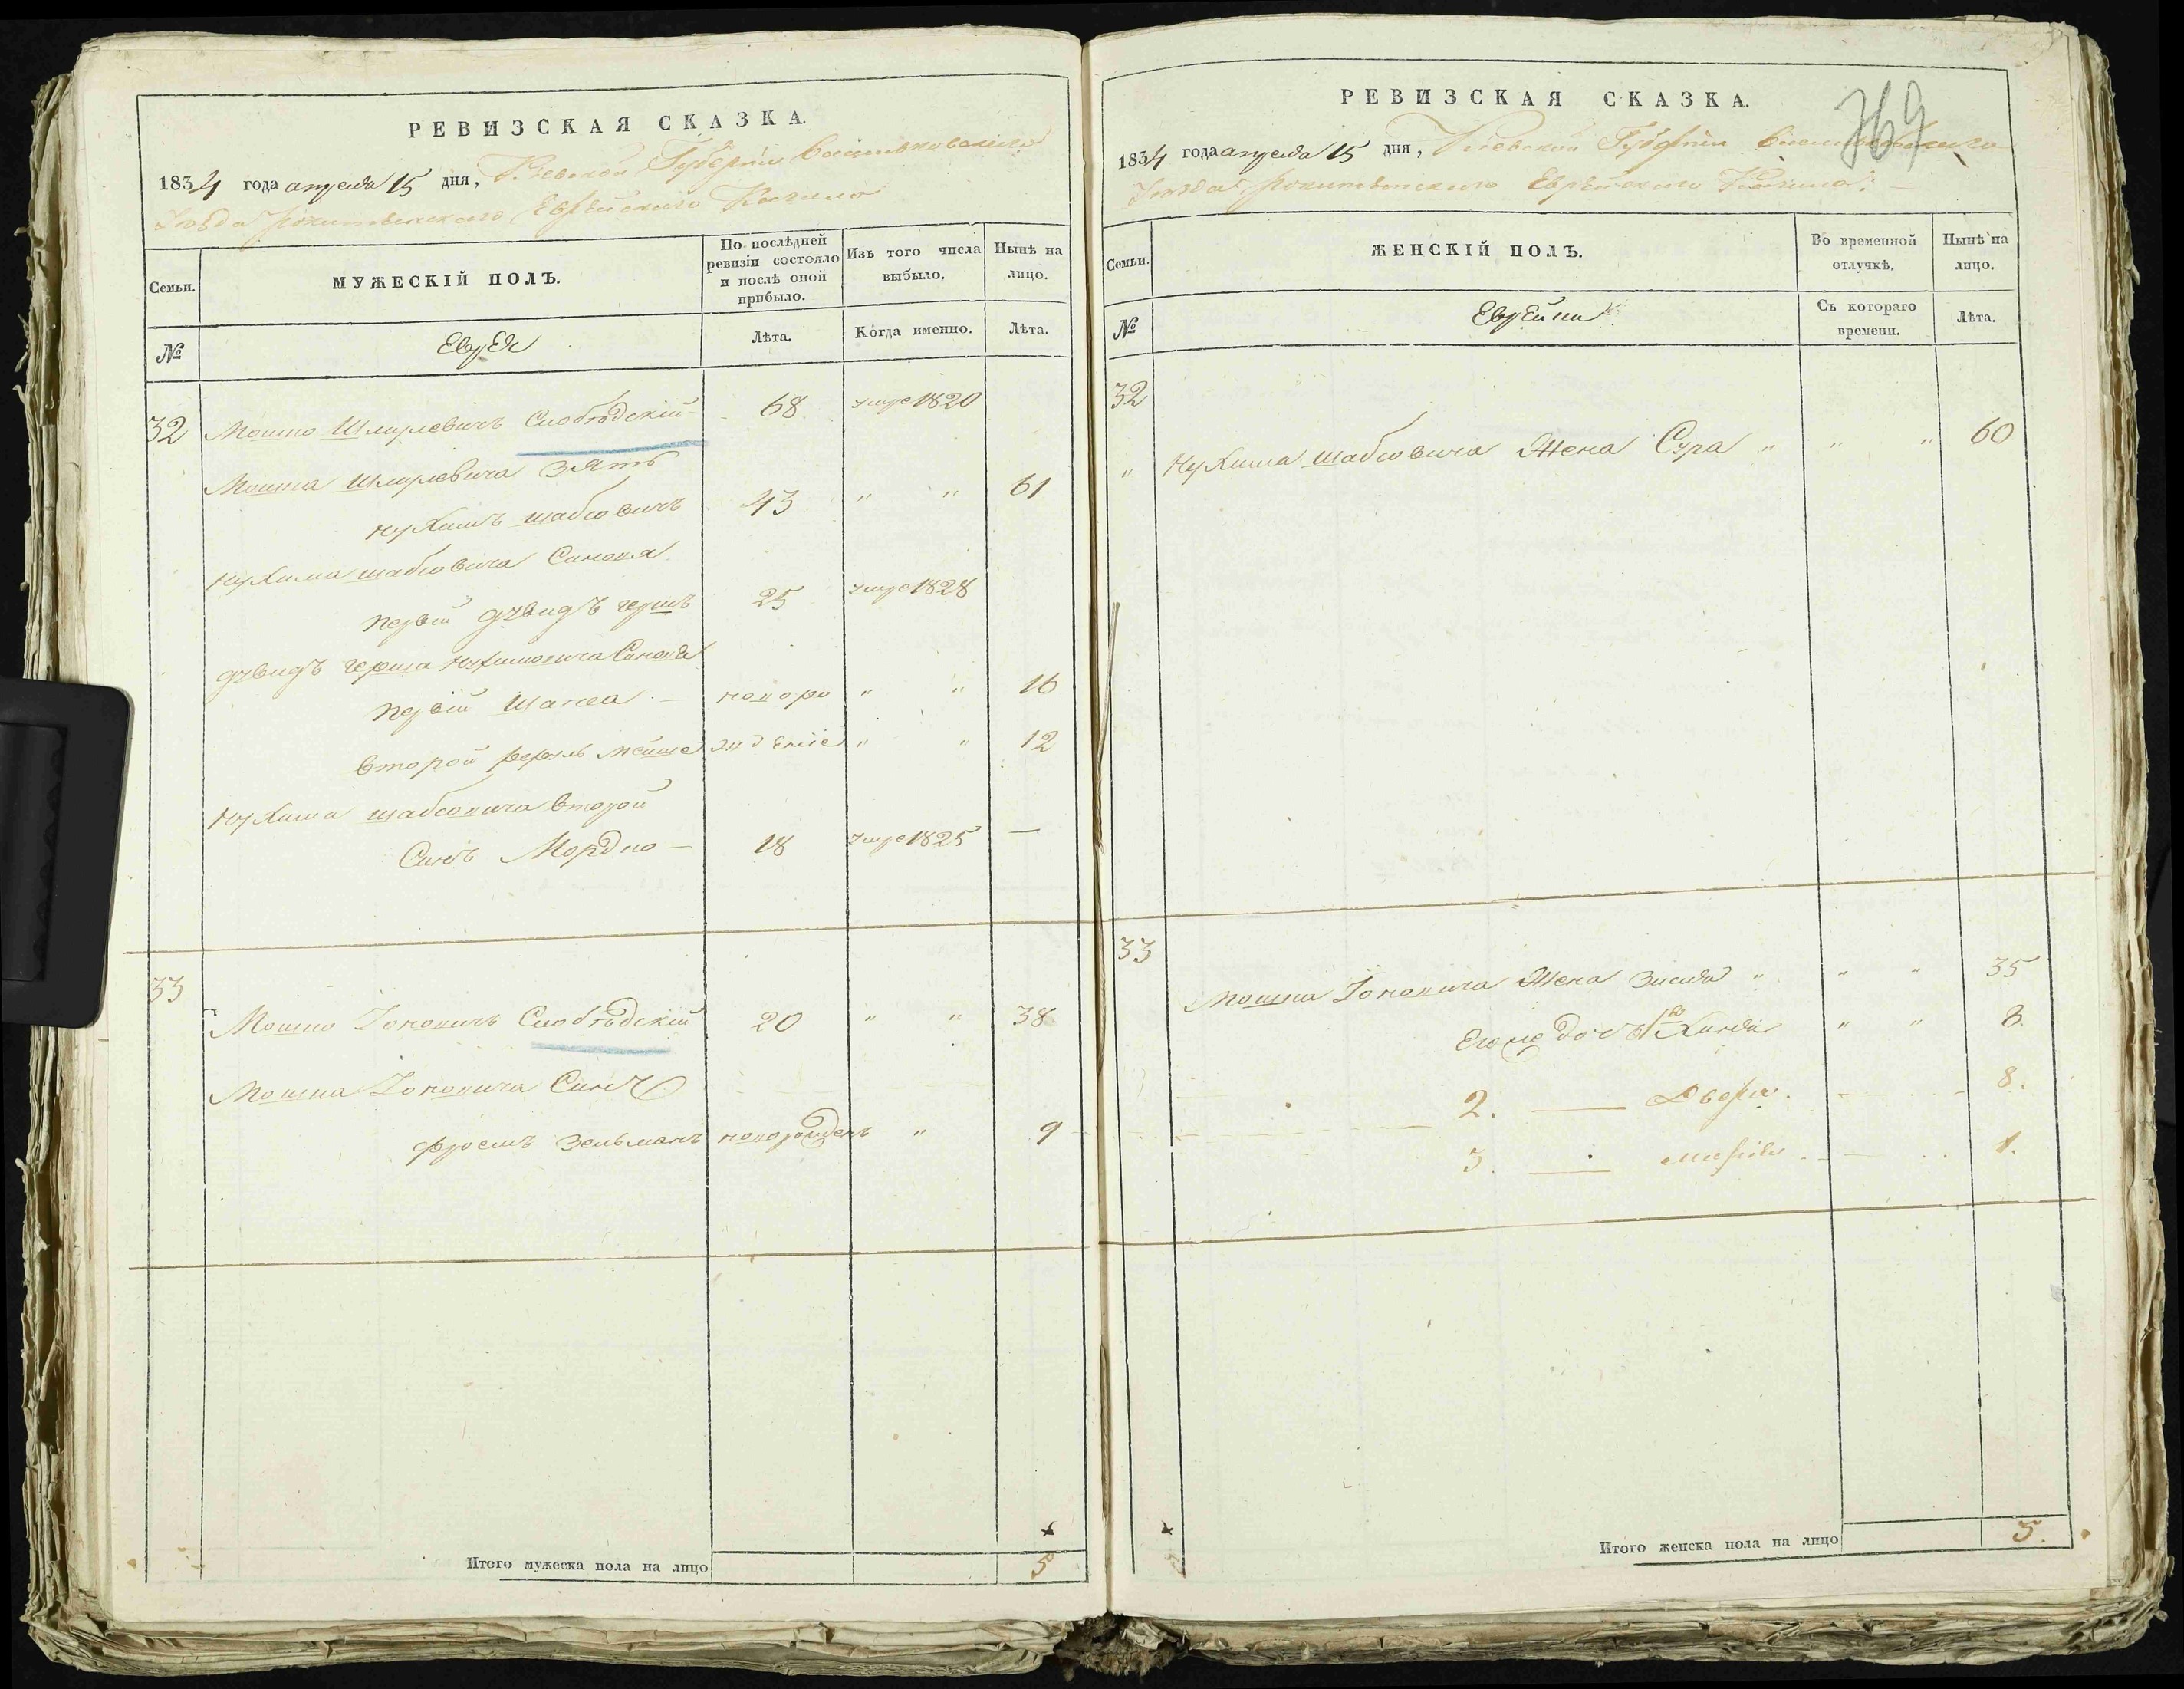 РЕВИЗСКАЯ СКАЗКА.
1834 года апреля 15 дня, Киевской Губернiи Васильковскаго
Уѣзда Рокитянскаго Еврейскаго Кагала
Семьи.
МУЖЕСКIЙ ПОЛЪ.
По послѣдней ревизiи состояло и послѣ оной прибыло.
Изъ того числа выбыло,
Нынѣ на лицо.
№
Евреи
Лѣта.
Когда именно.
Лѣта.
32 Мошко Шмулевичъ Слободскiй 68 умре 1820
Мошка Шмулевича Зять
Нухимъ Шабсовичъ 43 " " 61
Нухима Шабсовича Сыновья
первiй Дувидъ Гершъ 25 умре 1828
Дувидъ Герша Нухимовича Сыновья
первiй Шапса — новоро " " 16
второй Берль Мейше жденiе " " 12
Нухима Шабсовича второй
Сынъ Мордко — 18 умре 1825 —
33
Мошко Iоновичъ Слободскiй 20 " " 38
Мошка Iоновича Сынъ
Фроемъ Зельманъ новорожденъ " 9
Итого мужеска пола на лицо 5
369
РЕВИЗСКАЯ СКАЗКА.
1834 года апреля 15 дня, Киевской Губернiи Васильковскаго
Уѣзда Рокитянскаго Еврейскаго Кагала. —
Семьи.
ЖЕНСКIЙ ПОЛЪ.
Во временной отлучкѣ,
Нынѣ на лицо.
№
Еврейки
Съ котораго времени.
Лѣта.
32
" Нухима Шабсовича Жена Сура " " " 60
33
Мошка Iоновича Жена Зисля " " " 35
Его же дочь 1ва Хинда " " 8.
2. — Двейра. — 8.
3. — Мирiя. — 1.
Итого женска пола на лицо 5.